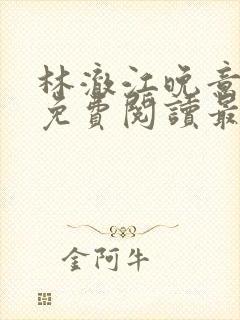 林澈江晚音
免費閱讀最
金阿牛